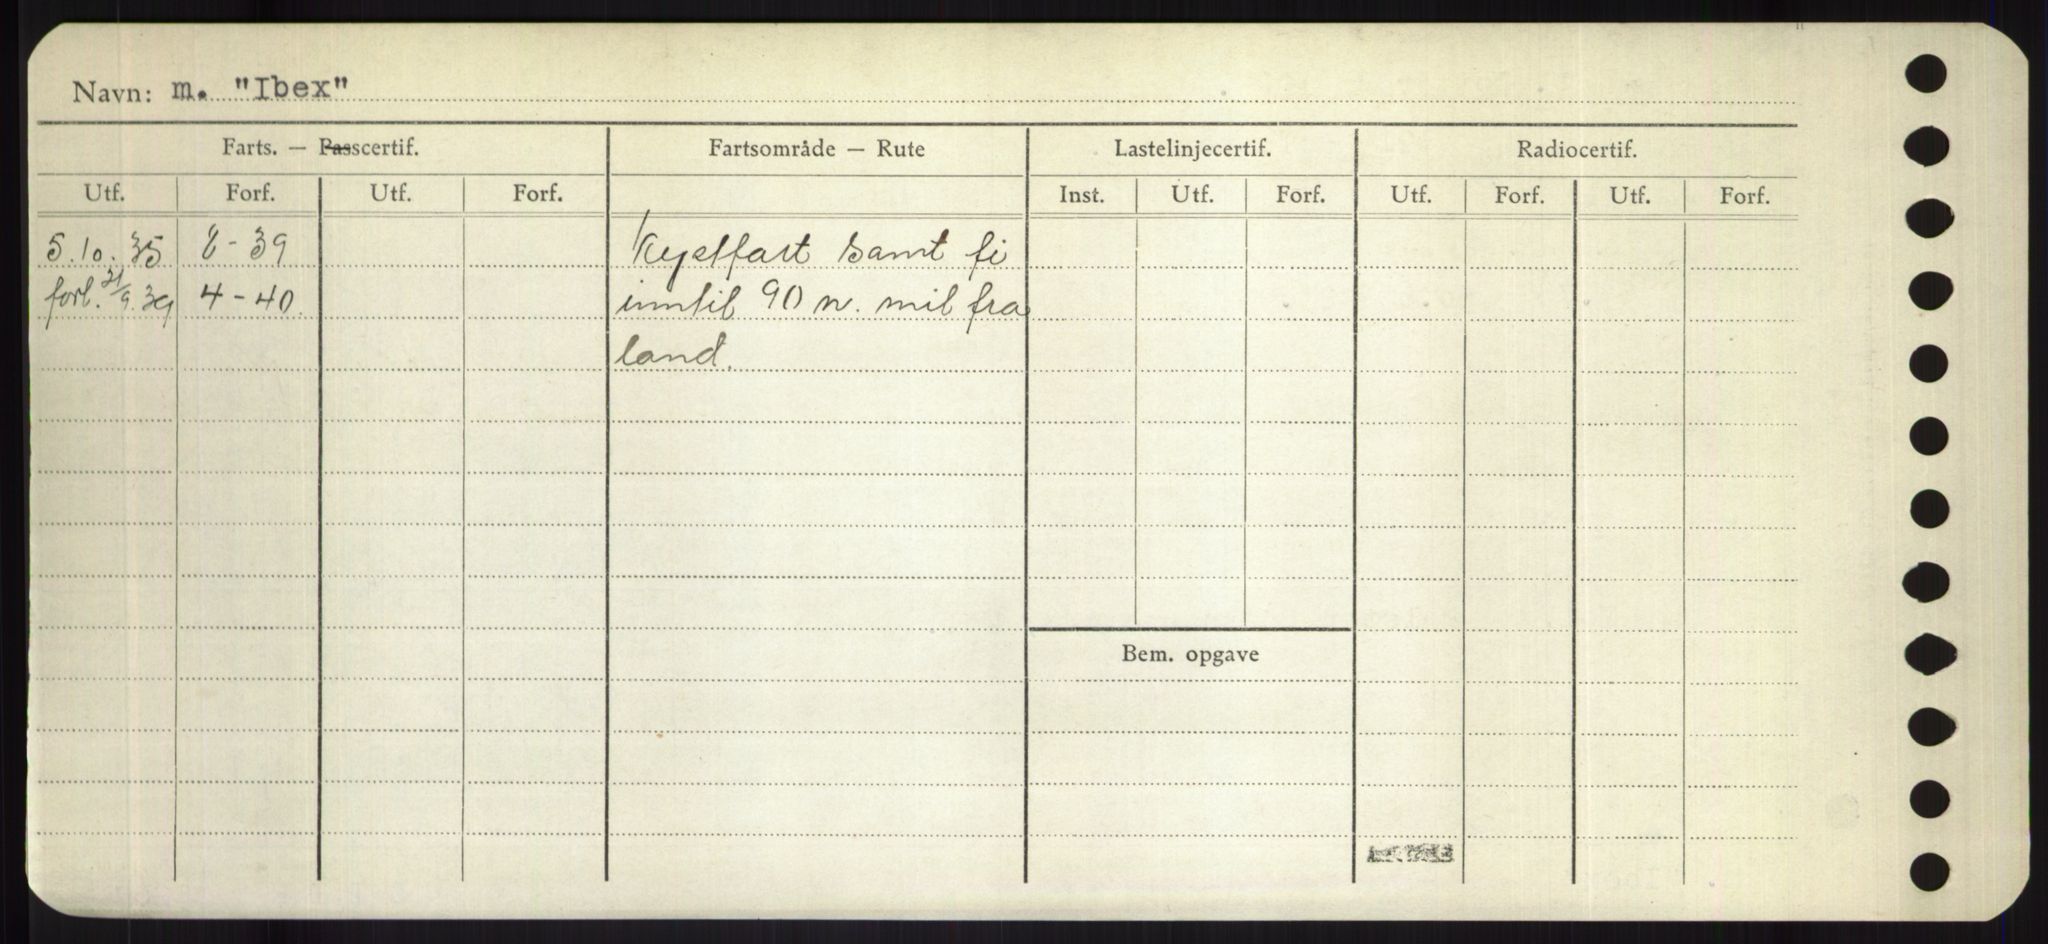 Navn: m. "Ibex"
Farts. — Passcertif. Fartsområde — Rute Lastelinjecertif. Radiocertif.
Utf. Forf. Utf. Forf. Inst. Utf. Forf. Utf. Forf. Utf. Forf.
5.10.35 8-39 Kystfart samt fi
forl. 21/9.39 4-40. inntil 90 n. mil fra
land.
Bem. opgave